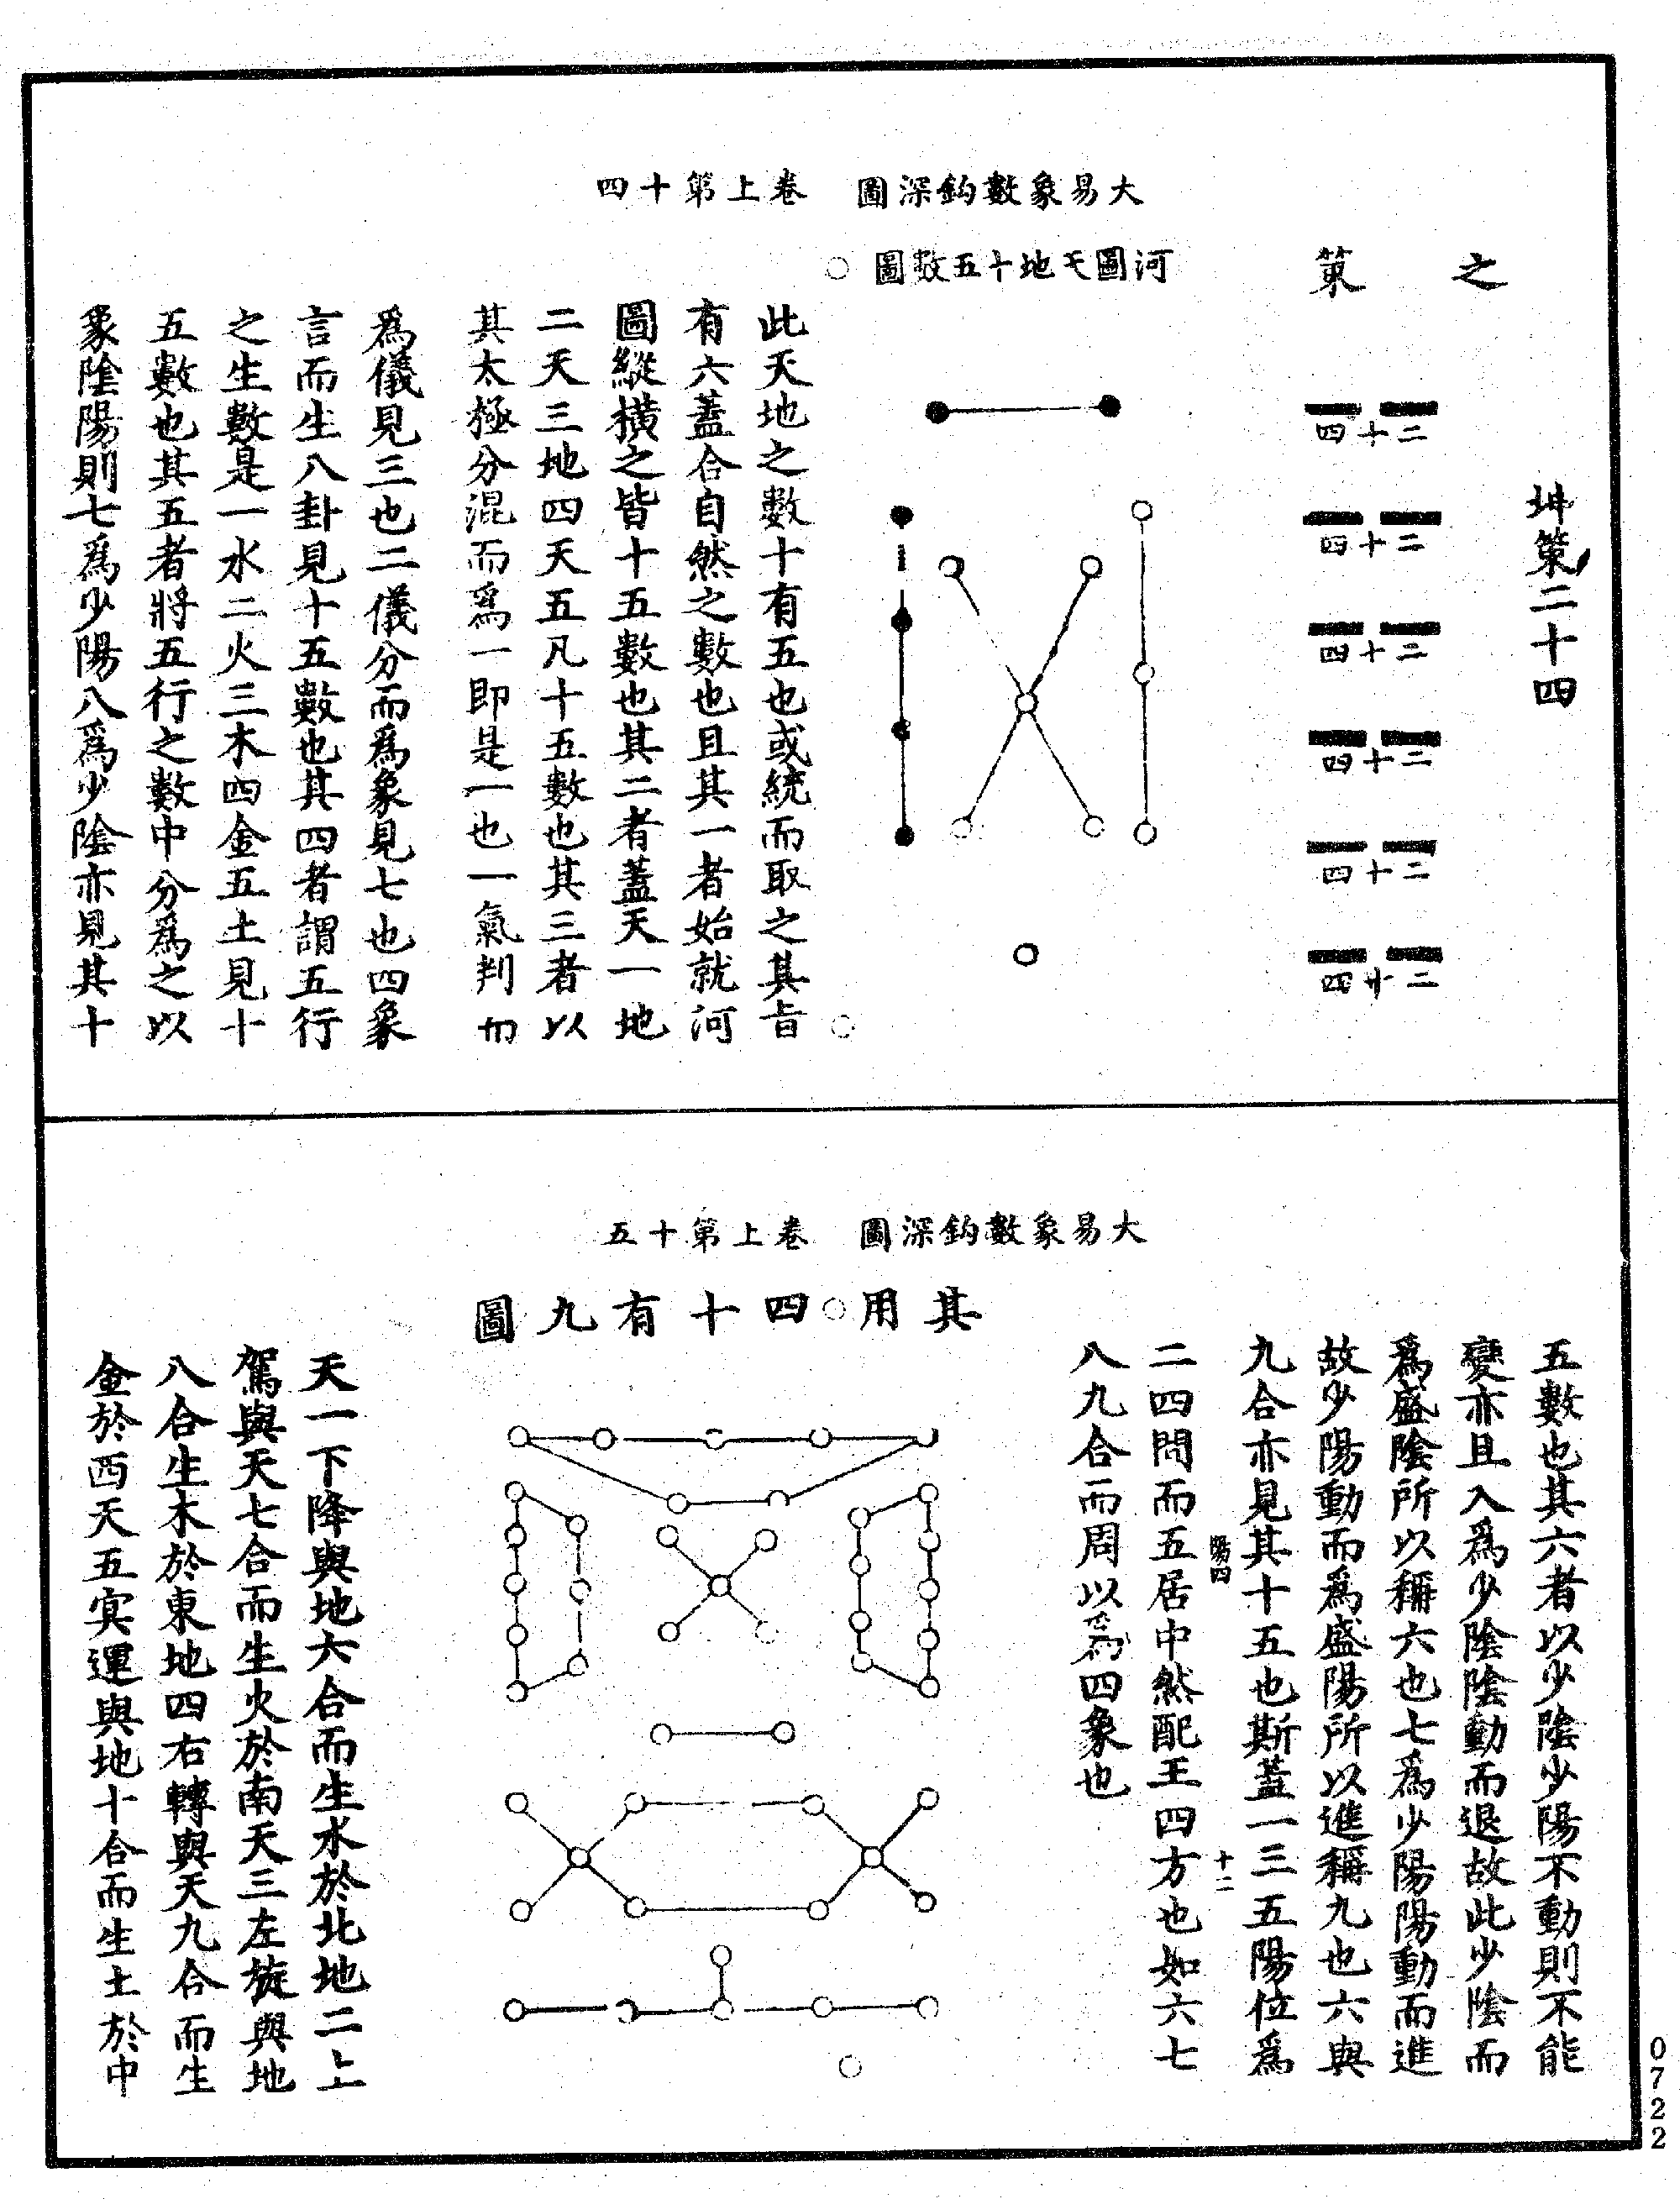 大易象數鈎深圖　卷上第十四
之　策
坤策二十四
二十四
二十四
二十四
二十四
二十四
二十四
河圖天地十五數圖
此天地之數十有五也或統而取之其旨
有六蓋合自然之數也且其一者始就河
圖縱橫之皆十五數也其二者蓋天一地
二天三地四天五凡十五數也其三者以
其太極分混而爲一即是一也一氣判而
爲儀見三也二儀分而爲象見七也四象
言而生八卦見十五數也其四者謂五行
之生數是一水二火三木四金五土見十
五數也其五者將五行之數中分爲之以
象陰陽則七爲少陽八爲少陰亦見其十
大易象數鈎深圖　卷上第十五
五數也其六者以少陰少陽不動則不能
變亦且入爲少陰陰動而退故此少陰而
爲盛陰所以稱六也七爲少陽陽動而進
故少陽動而爲盛陽所以進稱九也六與
九合亦見其十五也斯蓋一三五陽位爲
陽四　十二
二四問而五居中然配王四方也如六七
八九合而周以爲四象也
其用四十有九圖
天一下降與地六合而生水於北地二上
駕與天七合而生火於南天三左旋與地
八合生木於東地四右轉與天九合而生
金於西天五寘運與地十合而生土於中
0722